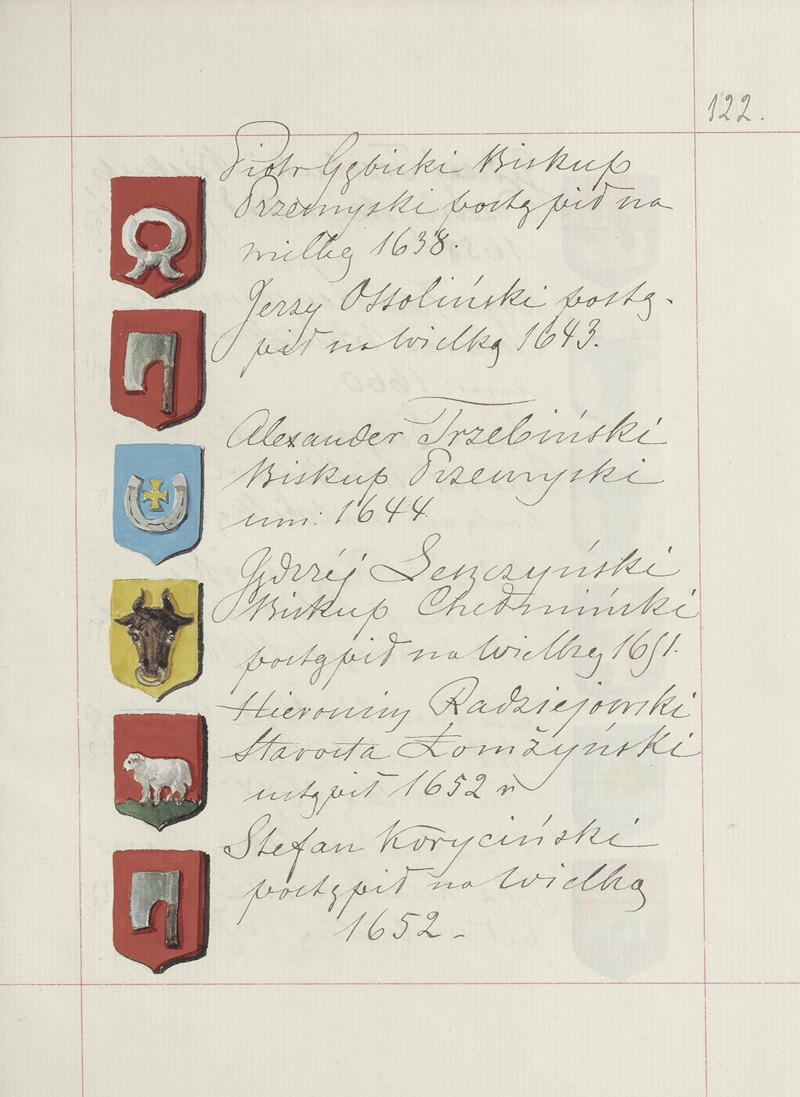 122.
Piotr Gębicki Biskup
Przemyski postąpił na
wielką 1638.
Jerzy Ossoliński postą-
pił na Wielką 1643.
Alexander Trzebiński
Biskup Przemyski
um: 1644
Jędrzéj Leszczyński
Biskup Chełmiński
postąpił na Wielką 1651.
Hieronim Radziejowski
Starosta Łomżyński
ustąpił 1652 r
Stefan Koryciński
postąpił na Wielką
1652.